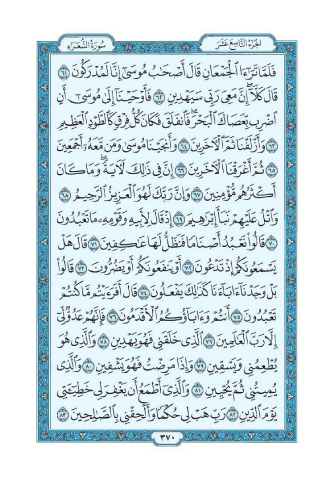 سُورَةُ الشُّعَرَاءِ
الجُزْءُ التَّاسِعَ عَشَرَ
فَلَمَّا تَرَٰٓءَا ٱلْجَمْعَانِ قَالَ أَصْحَٰبُ مُوسَىٰٓ إِنَّا لَمُدْرَكُونَ ٦١
قَالَ كَلَّآ إِنَّ مَعِىَ رَبِّى سَيَهْدِينِ ٦٢ فَأَوْحَيْنَآ إِلَىٰ مُوسَىٰٓ أَنِ
ٱضْرِب بِّعَصَاكَ ٱلْبَحْرَ فَٱنفَلَقَ فَكَانَ كُلُّ فِرْقٍ كَٱلطَّوْدِ ٱلْعَظِيمِ
٦٣ وَأَزْلَفْنَا ثَمَّ ٱلْءَاخَرِينَ ٦٤ وَأَنجَيْنَا مُوسَىٰ وَمَن مَّعَهُۥٓ أَجْمَعِينَ
٦٥ ثُمَّ أَغْرَقْنَا ٱلْءَاخَرِينَ ٦٦ إِنَّ فِى ذَٰلِكَ لَءَايَةً وَمَا كَانَ
أَكْثَرُهُم مُّؤْمِنِينَ ٦٧ وَإِنَّ رَبَّكَ لَهُوَ ٱلْعَزِيزُ ٱلرَّحِيمُ ٦٨
وَٱتْلُ عَلَيْهِمْ نَبَأَ إِبْرَٰهِيمَ ٦٩ إِذْ قَالَ لِأَبِيهِ وَقَوْمِهِۦ مَا تَعْبُدُونَ
٧٠ قَالُوا۟ نَعْبُدُ أَصْنَامًا فَنَظَلُّ لَهَا عَٰكِفِينَ ٧١ قَالَ هَلْ
يَسْمَعُونَكُمْ إِذْ تَدْعُونَ ٧٢ أَوْ يَنفَعُونَكُمْ أَوْ يَضُرُّونَ ٧٣ قَالُوا۟
بَلْ وَجَدْنَآ ءَابَآءَنَا كَذَٰلِكَ يَفْعَلُونَ ٧٤ قَالَ أَفَرَءَيْتُم مَّا كُنتُمْ
تَعْبُدُونَ ٧٥ أَنتُمْ وَءَابَآؤُكُمُ ٱلْأَقْدَمُونَ ٧٦ فَإِنَّهُمْ عَدُوٌّ لِّىٓ
إِلَّا رَبَّ ٱلْعَٰلَمِينَ ٧٧ ٱلَّذِى خَلَقَنِى فَهُوَ يَهْدِينِ ٧٨ وَٱلَّذِى هُوَ
يُطْعِمُنِى وَيَسْقِينِ ٧٩ وَإِذَا مَرِضْتُ فَهُوَ يَشْفِينِ ٨٠ وَٱلَّذِى
يُمِيتُنِى ثُمَّ يُحْيِينِ ٨١ وَٱلَّذِىٓ أَطْمَعُ أَن يَغْفِرَ لِى خَطِيٓـَٔتِى
يَوْمَ ٱلدِّينِ ٨٢ رَبِّ هَبْ لِى حُكْمًا وَأَلْحِقْنِى بِٱلصَّٰلِحِينَ ٨٣
٣٧٠